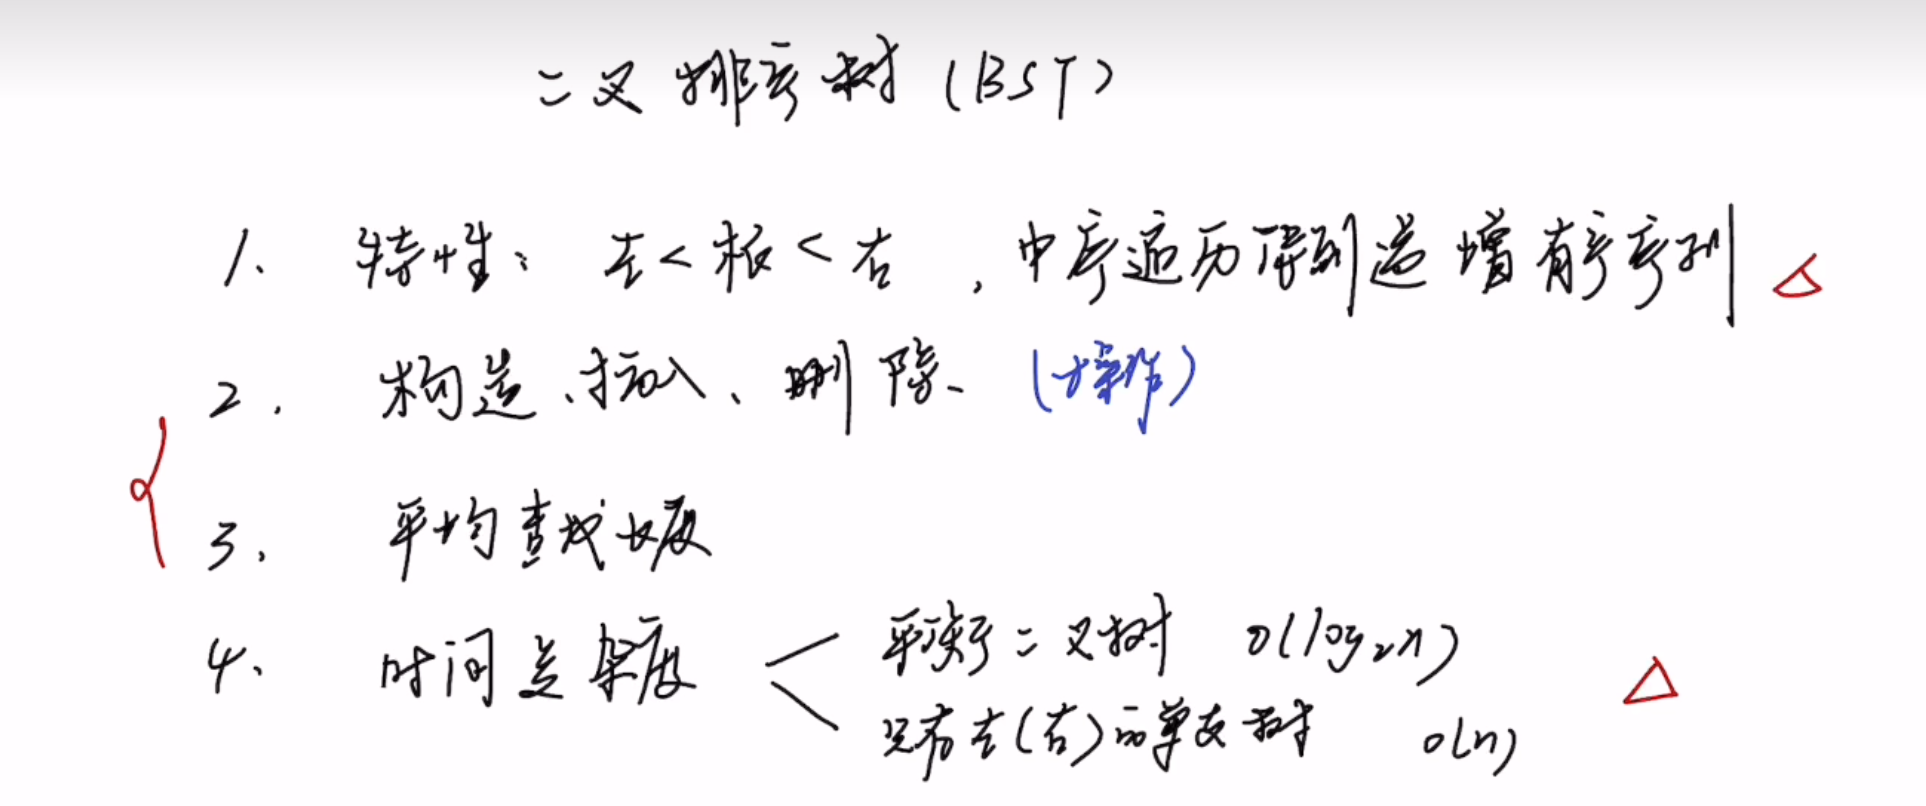 二叉排序树(BST)
1. 特性: 左<根<右 , 中序遍历得到递增有序序列
2. 构造、插入、删除、(操作)
3. 平均查找长度
4. 时间复杂度
平衡二叉树 O(log₂n)
只有左(右)的单支树 O(n)